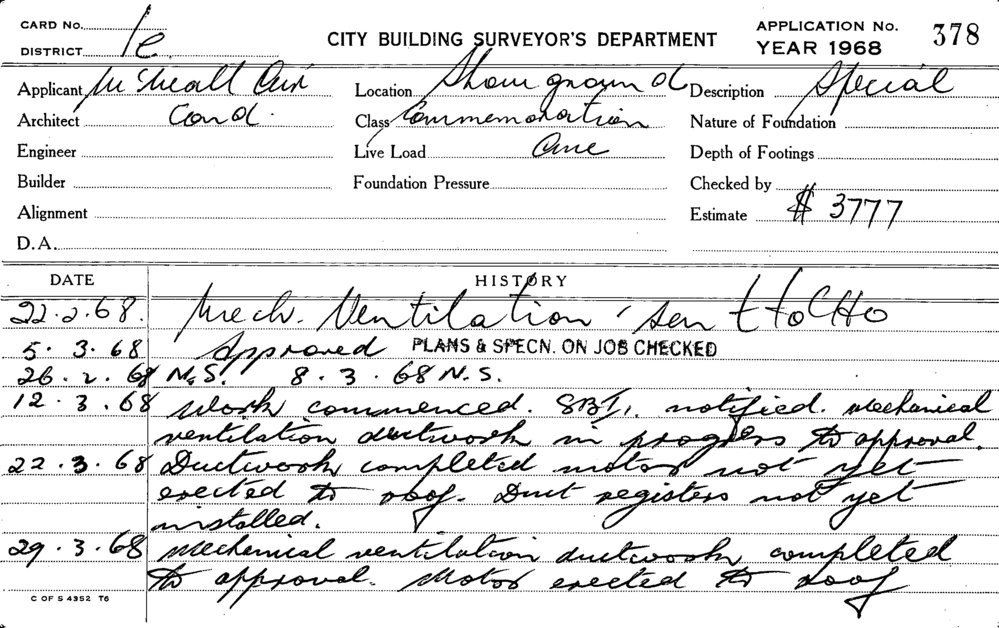 CARD No.
DISTRICT 1e
CITY BUILDING SURVEYOR'S DEPARTMENT
APPLICATION No. 378
YEAR 1968
Applicant Air Location Showground Description Special
Architect Cond. Class Commemoration Nature of Foundation
Engineer Live Load Ave Depth of Footings
Builder Foundation Pressure Checked by
Alignment Estimate $ 3777
D.A.
DATE HISTORY
22.2.68. Mech. Ventilation sent to CHO
5.3.68 Approved PLANS & SPECN. ON JOB CHECKED
26.2.68 N.S. 8.3.68 N.S.
12.3.68 Work commenced. SBI. notified. Mechanical
ventilation ductwork in progress to approval.
22.3.68 Ductwork completed motor not yet
erected to roof. Duct registers not yet
installed.
29.3.68 Mechanical ventilation ductwork completed
to approval. Motor erected to roof
C OF S 4352 T6